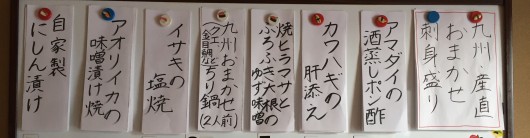 九州・産直
おまかせ
刺身盛り
アマダイの
酒蒸しポン酢
カワハギの
肝添え
焼ヒラマサと
ふろふき大根の
ゆず味噌
九州おまかせ
(クエと金目鯛)ちり鍋(2人前)
イサキの
塩焼
アオリイカの
味噌漬け焼
自家製
にしん漬け